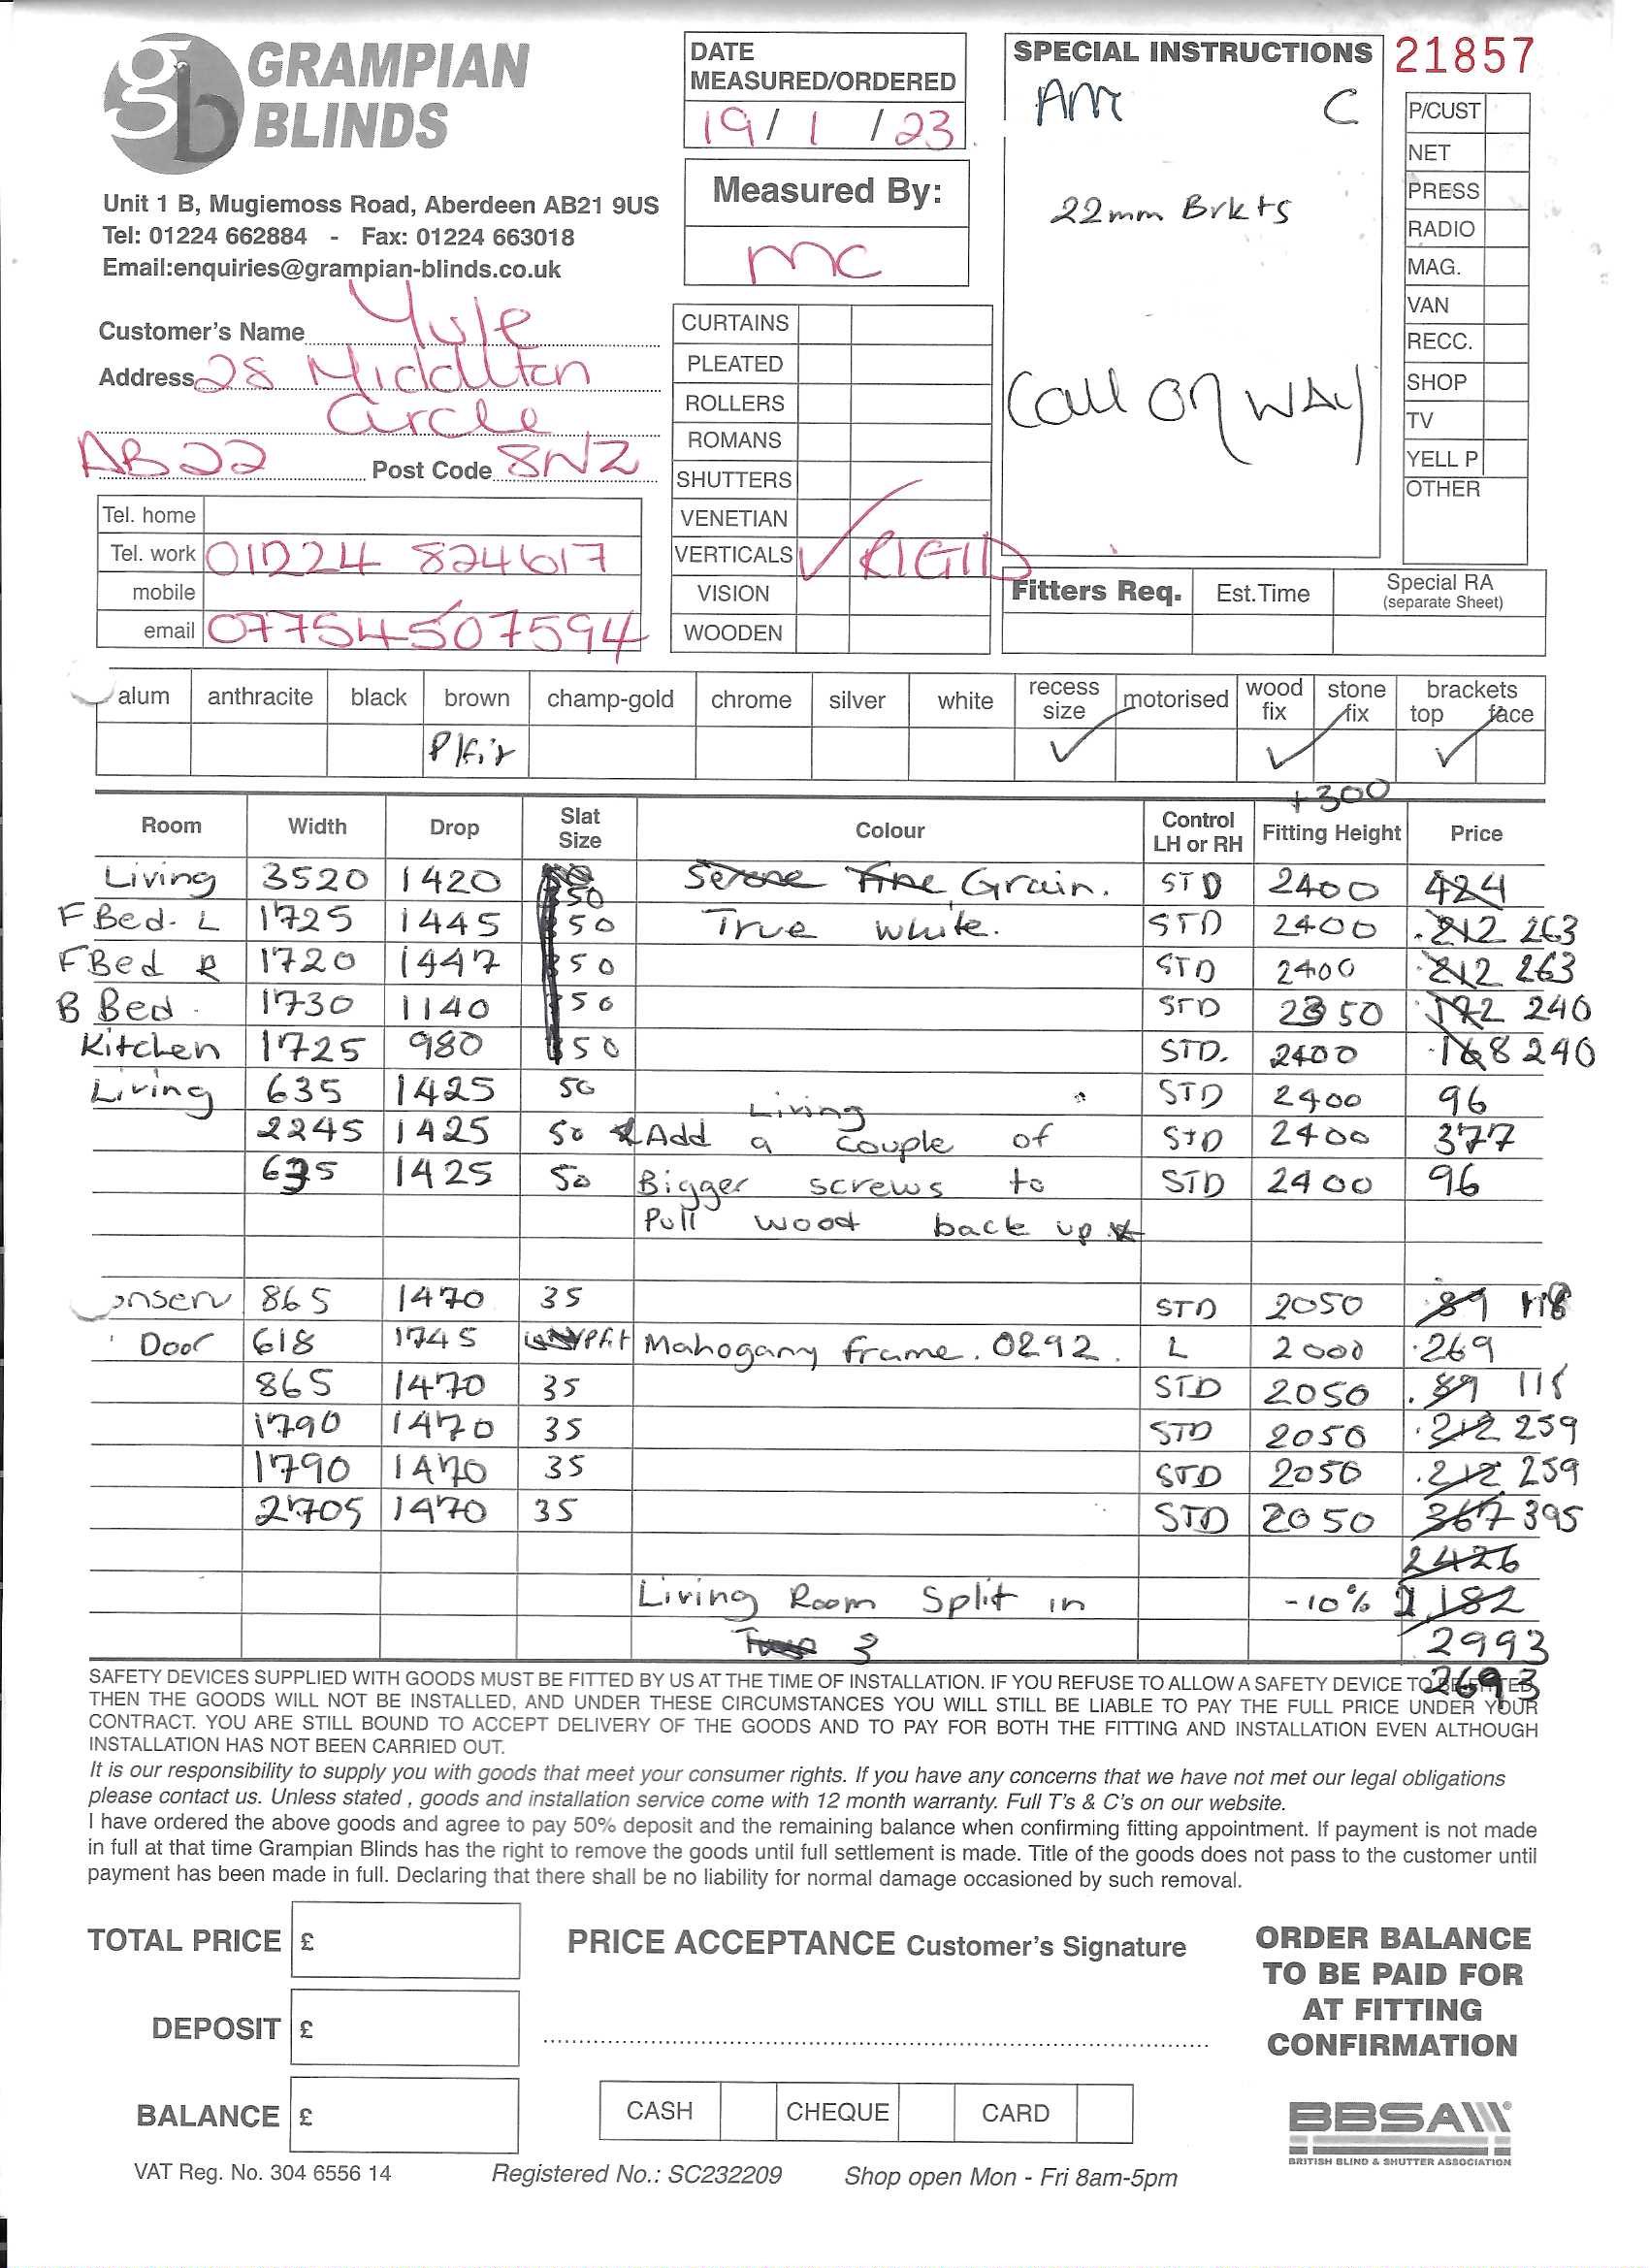 GRAMPIAN BLINDS
Unit 1 B, Mugiemoss Road, Aberdeen AB21 9US
Tel: 01224 662884 - Fax: 01224 663018
Email:enquiries@grampian-blinds.co.uk
Customer's Name Yule
Address 28 Middleton
Circle
AB22 Post Code 8NZ
Tel. home
Tel. work 01224 824617
mobile
email 07754507594
DATE
MEASURED/ORDERED
19/1/23.
Measured By:
MC
CURTAINS
PLEATED
ROLLERS
ROMANS
SHUTTERS
VENETIAN
VERTICALS ✓ RIGID
VISION
WOODEN
SPECIAL INSTRUCTIONS
AM C
22mm Brkts
Call on way
21857
P/CUST
NET
PRESS
RADIO
MAG.
VAN
RECC.
SHOP
TV
YELL P
OTHER
Fitters Req. Est.Time Special RA
(separate Sheet)
alum anthracite black brown champ-gold chrome silver white recess size motorised wood fix stone fix brackets top face
P/fit ✓ ✓ ✓
+300
Room Width Drop Slat Size Colour Control LH or RH Fitting Height Price
Living 3520 1420 50 Serene Fine Grain. STD 2400 424
F Bed. L 1725 1445 50 True white. STD 2400 212 263
F Bed R 1720 1447 50 STD 2400 212 263
B Bed 1730 1140 50 STD 2350 172 240
Kitchen 1725 980 50 STD. 2400 168 240
Living 635 1425 50 STD 2400 96
Living
2245 1425 50 *Add a couple of STD 2400 377
635 1425 50 Bigger screws to STD 2400 96
Pull wood back up *
onserv 865 1470 35 STD 2050 89 118
Door 618 1745 P/fit Mahogany frame. 0292. L 2000 269
865 1470 35 STD 2050 89 118
1790 1470 35 STD 2050 212 259
1790 1470 35 STD 2050 212 259
2705 1470 35 STD 2050 367 395
2426
Living Room Split in -10% 2,182
Two 3 2993
2693
SAFETY DEVICES SUPPLIED WITH GOODS MUST BE FITTED BY US AT THE TIME OF INSTALLATION. IF YOU REFUSE TO ALLOW A SAFETY DEVICE TO BE FITTED
THEN THE GOODS WILL NOT BE INSTALLED, AND UNDER THESE CIRCUMSTANCES YOU WILL STILL BE LIABLE TO PAY THE FULL PRICE UNDER YOUR
CONTRACT. YOU ARE STILL BOUND TO ACCEPT DELIVERY OF THE GOODS AND TO PAY FOR BOTH THE FITTING AND INSTALLATION EVEN ALTHOUGH
INSTALLATION HAS NOT BEEN CARRIED OUT.
It is our responsibility to supply you with goods that meet your consumer rights. If you have any concerns that we have not met our legal obligations
please contact us. Unless stated , goods and installation service come with 12 month warranty. Full T's & C's on our website.
I have ordered the above goods and agree to pay 50% deposit and the remaining balance when confirming fitting appointment. If payment is not made
in full at that time Grampian Blinds has the right to remove the goods until full settlement is made. Title of the goods does not pass to the customer until
payment has been made in full. Declaring that there shall be no liability for normal damage occasioned by such removal.
TOTAL PRICE £
DEPOSIT £
BALANCE £
PRICE ACCEPTANCE Customer's Signature
CASH CHEQUE CARD
ORDER BALANCE
TO BE PAID FOR
AT FITTING
CONFIRMATION
BBSA
BRITISH BLIND & SHUTTER ASSOCIATION
VAT Reg. No. 304 6556 14 Registered No.: SC232209 Shop open Mon - Fri 8am-5pm